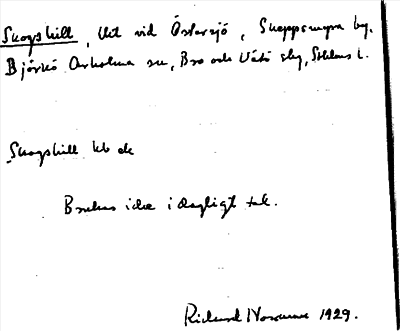 Skogshill, Utt vid Östersjö, Skeppsmyra by,
Björkö Arholma sn, Bro och Vätö skg, Sthlms l.
Skogshill kb ek
Brukas icke i dagligt tal.
Rickard 1929.